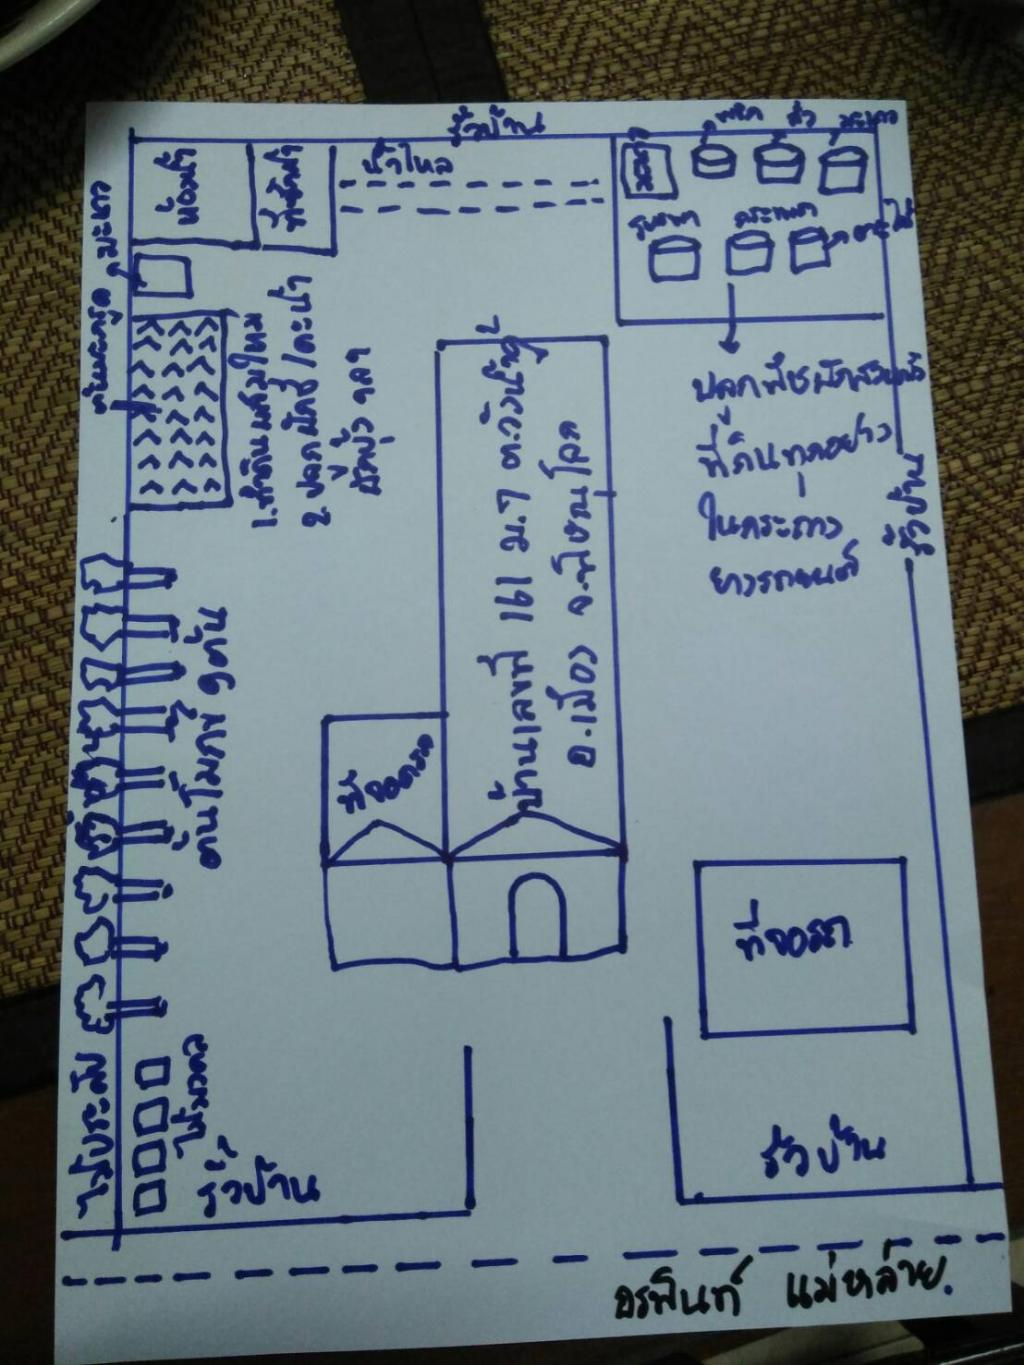 รั้วบ้าน
ห้องน้ำ
ที่ซักผ้า
น้ำไหล
พริก
มะนาว
กระเพรา
มะนาว
ต้นมะกรูด
1. ทำดินผสมใหม่
2. ปลูกผักชี / คะน้า
ผักบุ้ง ฯลฯ
ปลูกพืชผักสวนครัว
ที่กินทุกอย่าง
ในกระถาง
ยางรถยนต์
รั้วบ้าน
บ้านเลขที่ 161 ม.7
อ.เมือง จ.พิษณุโลก
ที่จอดรถ
ต้นโมกข์ 9 ต้น
รั้วบ้าน
ที่จอดรถ
ไม้ประดับ
ไม้มงคล
รั้วบ้าน
รั้วบ้าน
อรพินท์ แม่หล่าย.